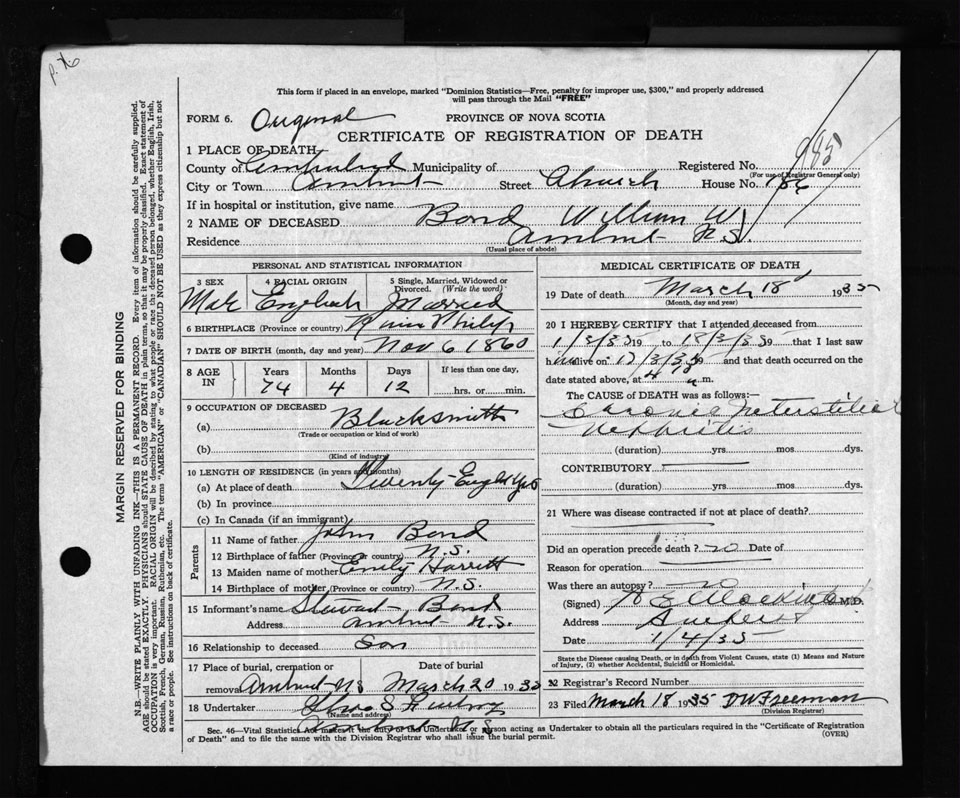 p. 76
This form if placed in an envelope, marked "Dominion Statistics—Free, penalty for improper use, $300," and properly addressed
will pass through the Mail "FREE"
FORM 6. Original PROVINCE OF NOVA SCOTIA
CERTIFICATE OF REGISTRATION OF DEATH
985
1 PLACE OF DEATH
County of Cumberland Municipality of Registered No.
(For use of Registrar General only)
City or Town Amherst Street Church House No. 186
If in hospital or institution, give name
2 NAME OF DECEASED Bond William W.
Residence Amherst N.S.
(Usual place of abode)
PERSONAL AND STATISTICAL INFORMATION
3 SEX 4 RACIAL ORIGIN 5 Single, Married, Widowed or Divorced. (Write the word)
Male English Married
6 BIRTHPLACE (Province or country) River Philip
7 DATE OF BIRTH (month, day and year) Nov 6 1860
8 AGE IN Years Months Days If less than one day,
74 4 12 hrs. or min.
9 OCCUPATION OF DECEASED
(a) Blacksmith
(Trade or occupation or kind of work)
(b)
(Kind of industry)
10 LENGTH OF RESIDENCE (in years and months)
(a) At place of death Twenty-Eight yrs
(b) In province
(c) In Canada (if an immigrant)
Parents
11 Name of father John Bond
12 Birthplace of father (Province or country) N.S.
13 Maiden name of mother Emily Harrett
14 Birthplace of mother (Province or country) N.S.
15 Informant's name Stewart Bond
Address Amherst N.S.
16 Relationship to deceased Son
17 Place of burial, cremation or Date of burial
removal Amherst NS March 20 1935
18 Undertaker
(Name and address)
Amherst N.S.
MEDICAL CERTIFICATE OF DEATH
19 Date of death March 18 1935
(Month, day and year)
20 I HEREBY CERTIFY that I attended deceased from
1/3/35 19 to 18/3/35 19 that I last saw
him alive on 17/3/35 19 and that death occurred on the
date stated above, at m.
The CAUSE OF DEATH was as follows:—
Chronic Interstitial
Nephritis
(duration) yrs. mos. dys.
CONTRIBUTORY
(duration) yrs. mos. dys.
21 Where was disease contracted if not at place of death?
Did an operation precede death? no Date of
Reason for operation
Was there an autopsy? no
(Signed) M.D.
Address Amherst
Date 1/4/35
State the Disease causing Death, or in death from Violent Causes, state (1) Means and Nature
of Injury, (2) whether Accidental, Suicidal or Homicidal.
22 Registrar's Record Number
23 Filed March 18 1935 DW Freeman
(Division Registrar)
Sec. 46—Vital Statistics Act makes it the duty of the Undertaker or person acting as Undertaker to obtain all the particulars required in the "Certificate of Registration
of Death" and to file the same with the Division Registrar who shall issue the burial permit. (OVER)
MARGIN RESERVED FOR BINDING
N.B.—WRITE PLAINLY WITH UNFADING INK—THIS IS A PERMANENT RECORD. Every item of information should be carefully supplied.
AGE should be stated EXACTLY. PHYSICIANS should STATE CAUSE OF DEATH in plain terms, so that it may be properly classified. Exact statement of
OCCUPATION is very important. RACIAL ORIGIN will be described by stating to what people or race the deceased person belonged, whether English, Irish,
Scottish, French, German, Russian, Ruthenian, etc. The terms "AMERICAN" or "CANADIAN" SHOULD NOT BE USED as they express citizenship but not
a race or people. See instructions on back of certificate.